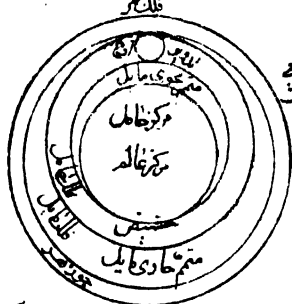 فلک قمر
اوج
تدویر
متمم محوی مایل
مرکز حامل
مرکز عالم
فلک حامل
فلک مایل
حضیض
متمم حاوی مایل
جوزهر